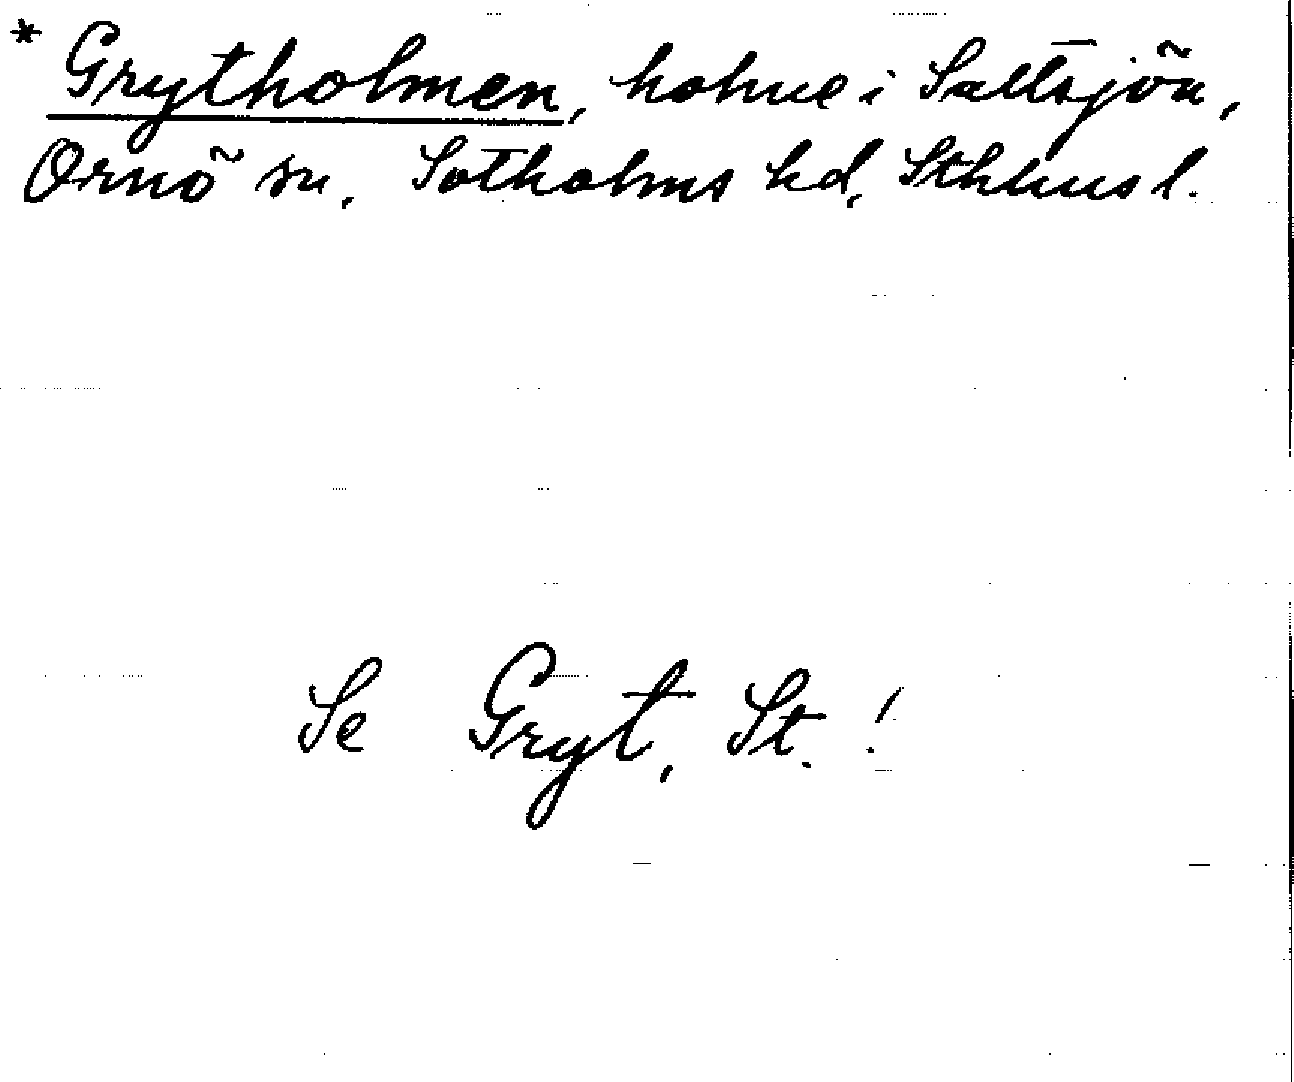 * Grytholmen, holme i Saltsjön,
Ornö sn, Sotholms hd, Sthlms l.
Se Gryt, St. !